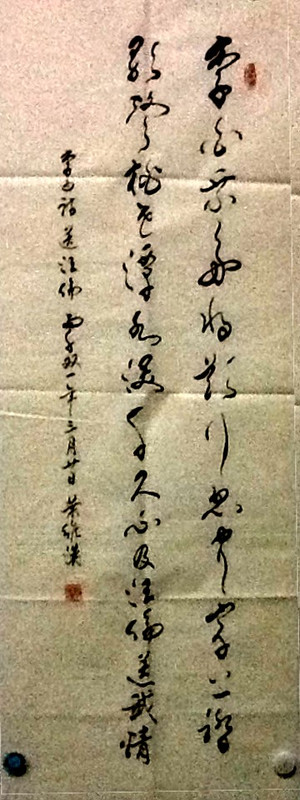 李白乘舟將欲行忽聞岸上踏
歌聲桃花潭水深千尺不及汪倫送我情
李白詩送汪倫 年三月廿日